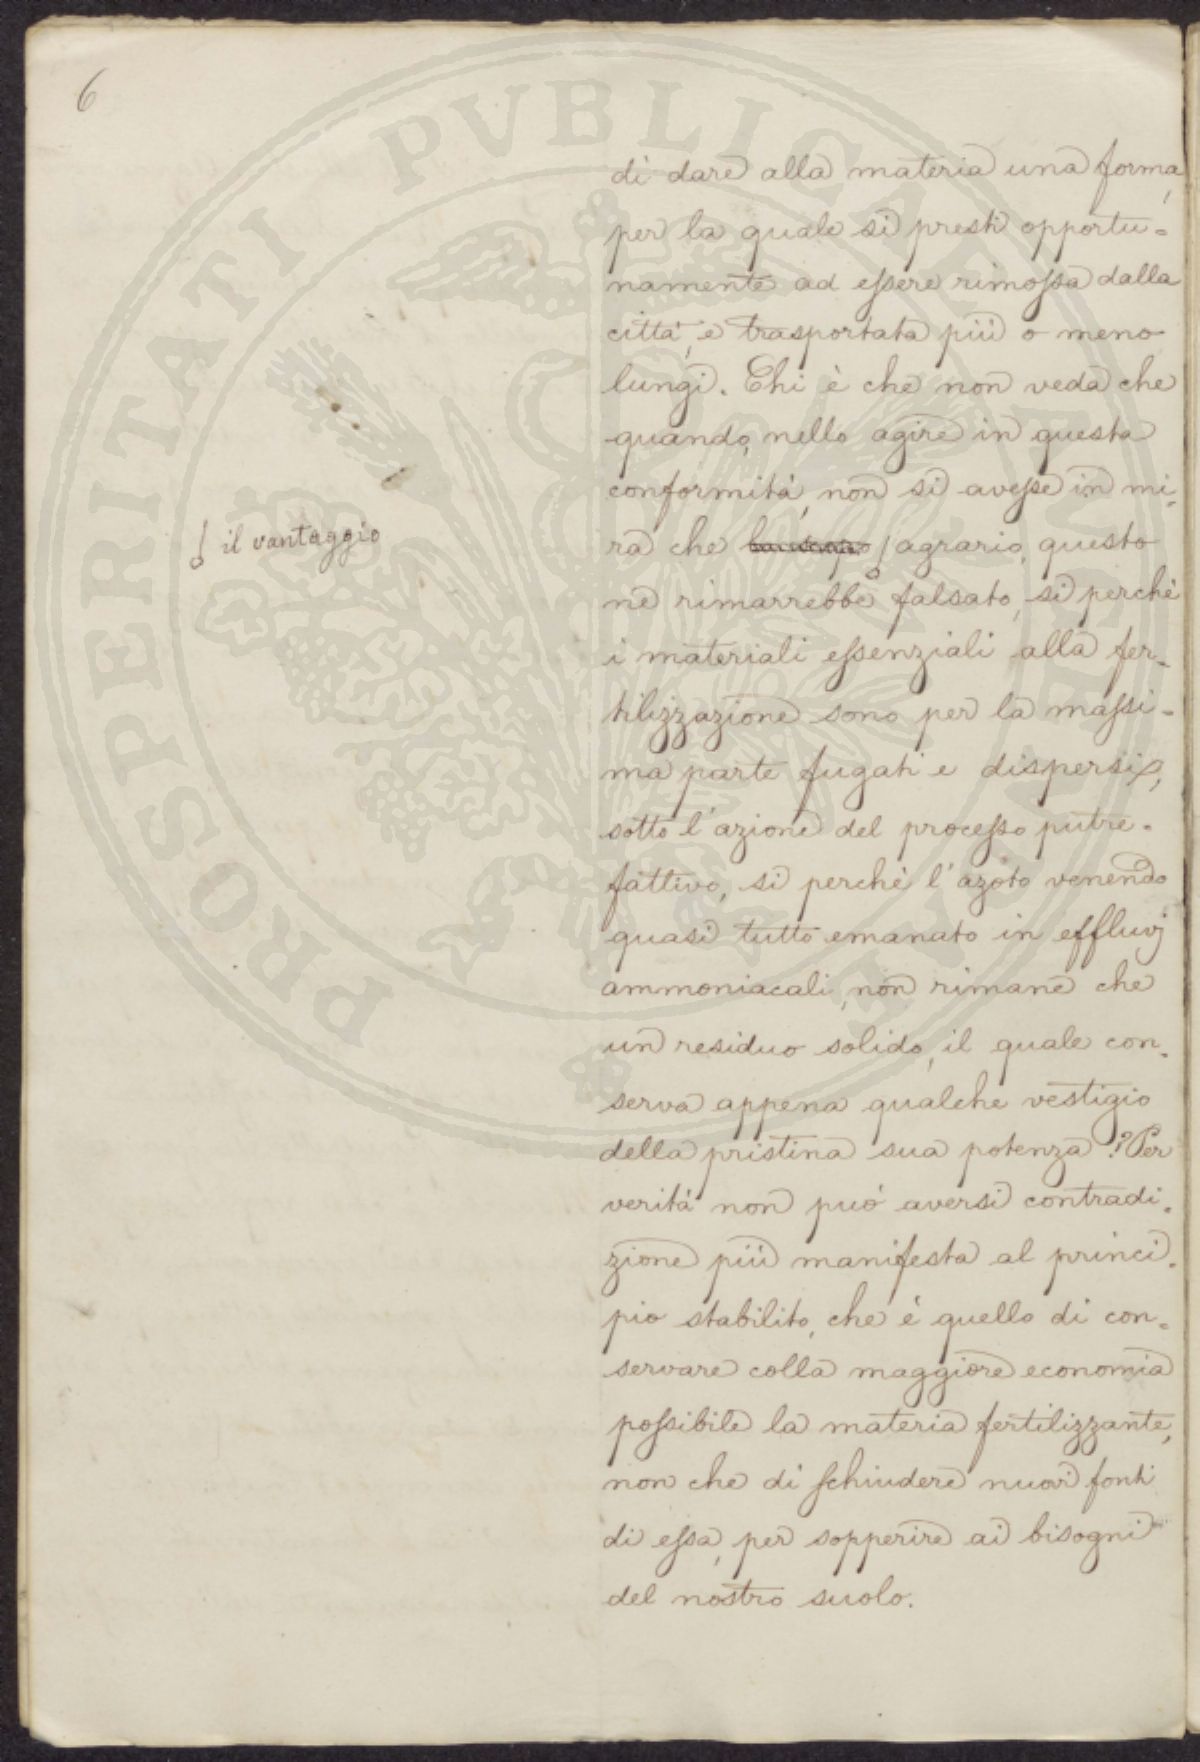 6
di dare alla materia una forma,
per la quale si presti opportu=
namente ad essere rimossa dalla
città, e trasportata più o meno
lungi. Chi è che non veda che
quando, nello agire in questa
conformità, non si avesse in mi=
il vantaggio
ra che agrario, questo
ne rimarrebbe falsato, si perchè
i materiali essenziali alla fer=
tilizzazione sono per la massi=
ma parte fugati e dispersi,
sotto l'azione del processo putre=
fattivo, si perchè l'azoto venendo
quasi tutto emanato in effluvj
ammoniacali, non rimane che
un residuo solido, il quale con=
serva appena qualche vestigio
della pristina sua potenza? Per
verità non può aversi contradi=
zione più manifesta al princi=
pio stabilito, che è quello di con=
servare colla maggiore economia
possibile la materia fertilizzante,
non che di schiudere nuovi fonti
di essa, per sopperire ai bisogni
del nostro suolo.
PROSPERITATI PVBLICAE AVGENDAE